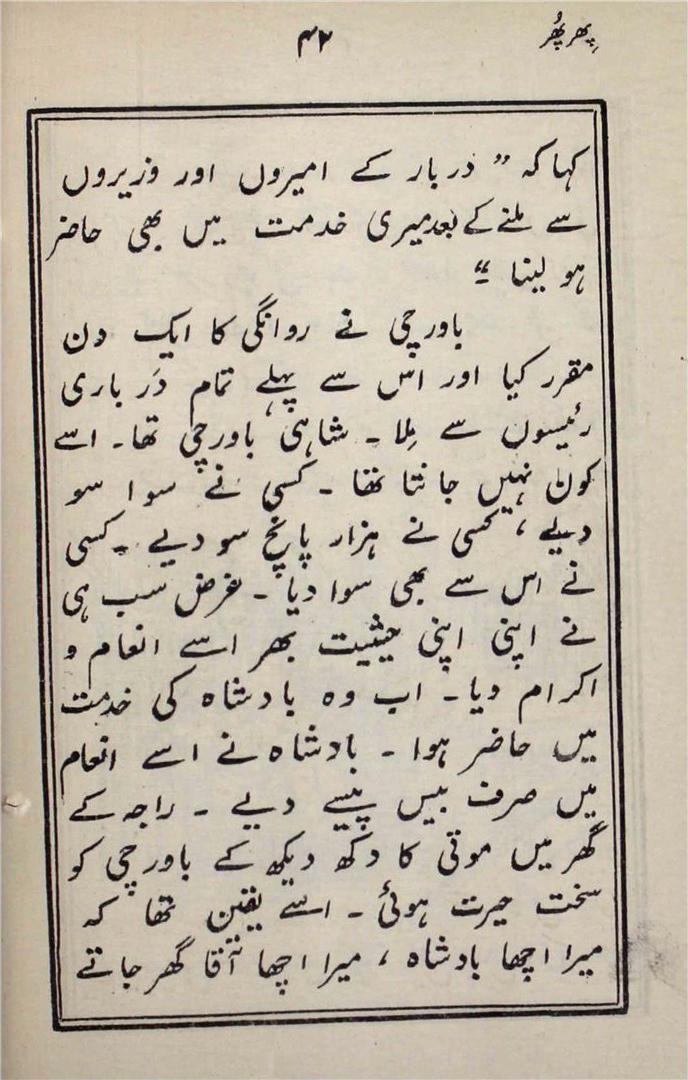 پھر پھر
۴۲
کہا کہ ” دربار کے امیروں اور وزیروں
سے ملنے کے بعد میری خدمت میں بھی حاضر
ہو لینا “
باورچی نے روانگی کا ایک دن
مقرر کیا اور اس سے پہلے تمام درباری
رئیسوں سے مِلا ۔ شاہی باورچی تھا۔ اسے
کون نہیں جانتا تھا ۔ کسی نے سوا سو
دیے ، کسی نے ہزار پانچ سو دیے ۔ کسی
نے اس سے بھی سوا دیا ۔ غرض سب ہی
نے اپنی اپنی حیثیت بھر اسے انعام و
اکرام دیا۔ اب وہ بادشاہ کی خدمت
میں حاضر ہوا ۔ بادشاہ نے اسے انعام
میں صرف بیس پیسے دیے ۔ راجہ کے
گھر میں موتی کا دکھ دیکھ کے باورچی کو
سخت حیرت ہوئی ۔ اسے یقین تھا کہ
میرا اچھا بادشاہ ، میرا اچھا آقا گھر جاتے